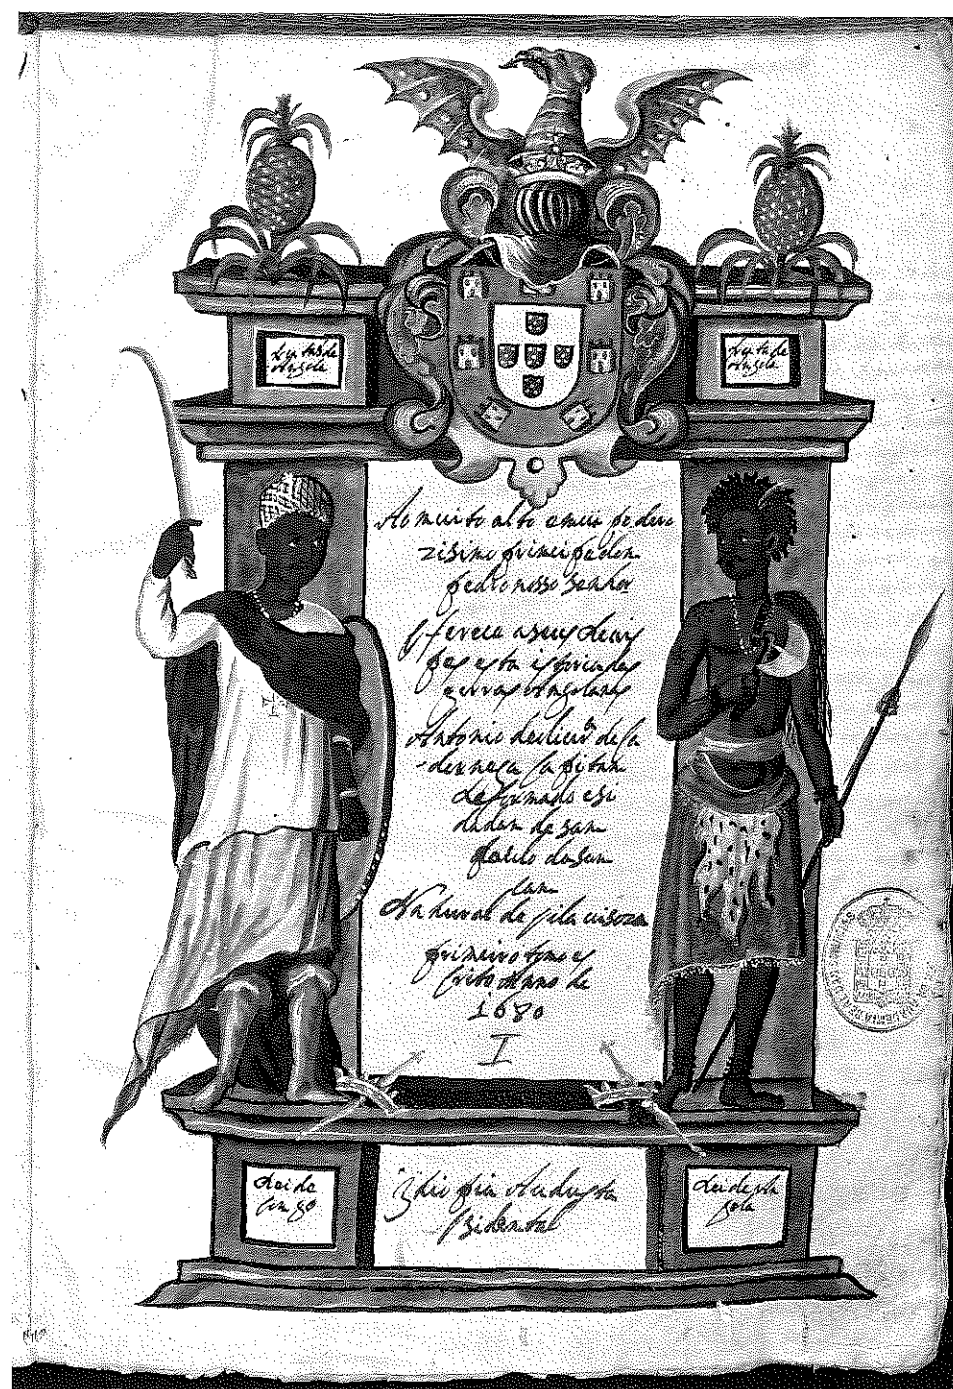 frutas de
Angola
fruta de
Angola
Ao muito alto e muy podero
zisimo principe dom
pedro nosso senhor
offerece a seus Reais
pes esta istoria das
gerras Angolanas
Antonio de olieirª de Ca
dornega Capitam
Reformado e si
dadam de sam
paulo da Sun
cam
Natural de vila visoza
primeiro tomo es
crito o Anno de
1680
I
Rei de
Congo
Etiopia
sidental
Rei de An
gola